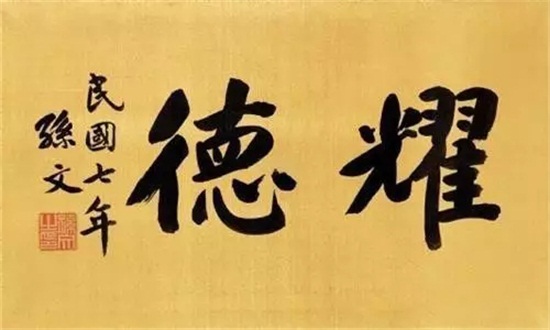 耀德
民國七年
孫文